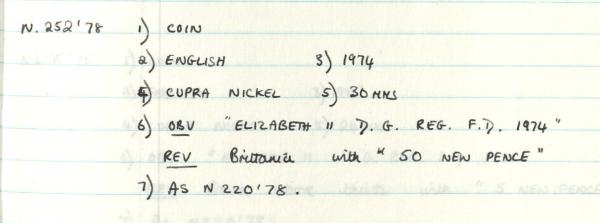 N. 252'78 1) COIN
2) ENGLISH 3) 1974
4) CUPRA NICKEL 5) 30 MMS
6) OBV "ELIZABETH II D. G. REG. F.D. 1974"
REV Brittania with "50 NEW PENCE"
7) AS N 220'78.